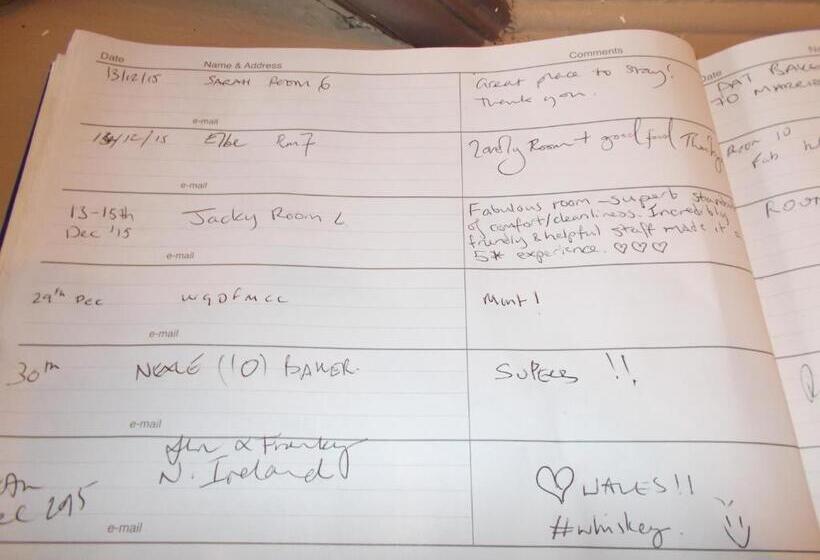 Date Name & Address Comments
13/12/15 SARAH ROOM 6 Great place to stay!
Thank you.
e-mail
13/12/15 Rm 7 Room + good food
e-mail
13-15th Jacky Room Fabulous room - superb
Dec '15 of comfort/cleanliness. Incredibly
friendly & helpful staff made it
e-mail 5* experience. ♡♡♡
29th Dec Mint!
e-mail
30th (10) BAKER. SUPERB !!
e-mail
& Franky
N. Ireland
♡ WALES!!
2015 #whiskey.
e-mail
Date
PAT
TO MARRIE
Room 10
Fab